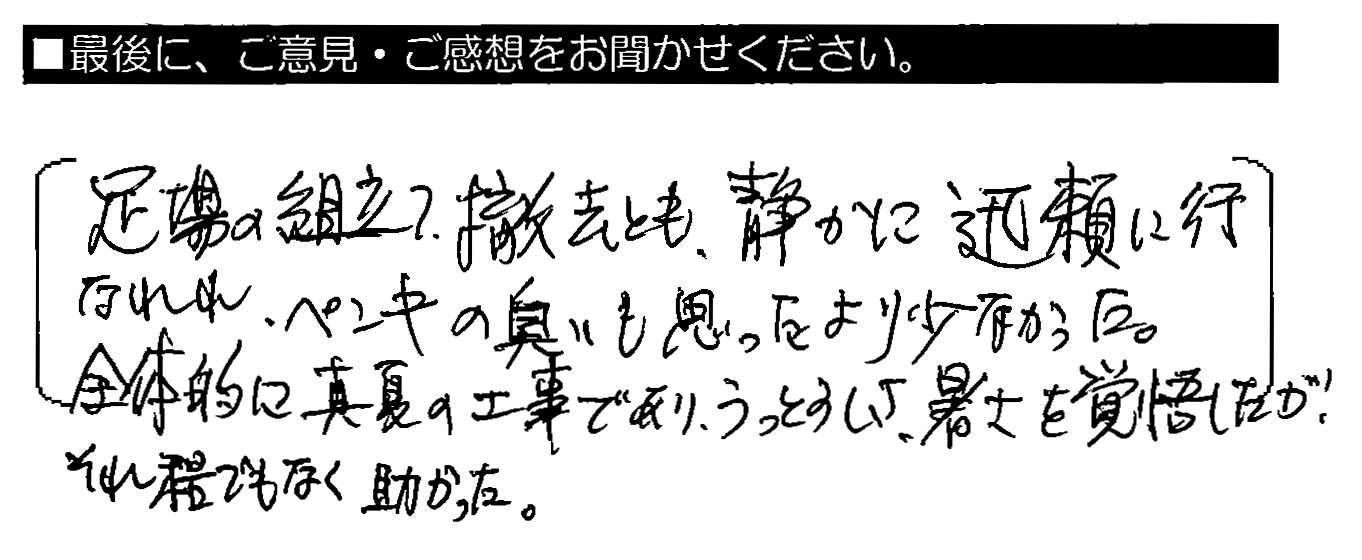 ■最後に、ご意見・ご感想をお聞かせください。
足場の組立て、撤去とも、静かに迅頼に行
なわれ、ペンキの臭いも思ったより少なかった。
全体的に真夏の工事であり、うっとうしさ、暑さを覚悟したが、
それ程でもなく助かった。